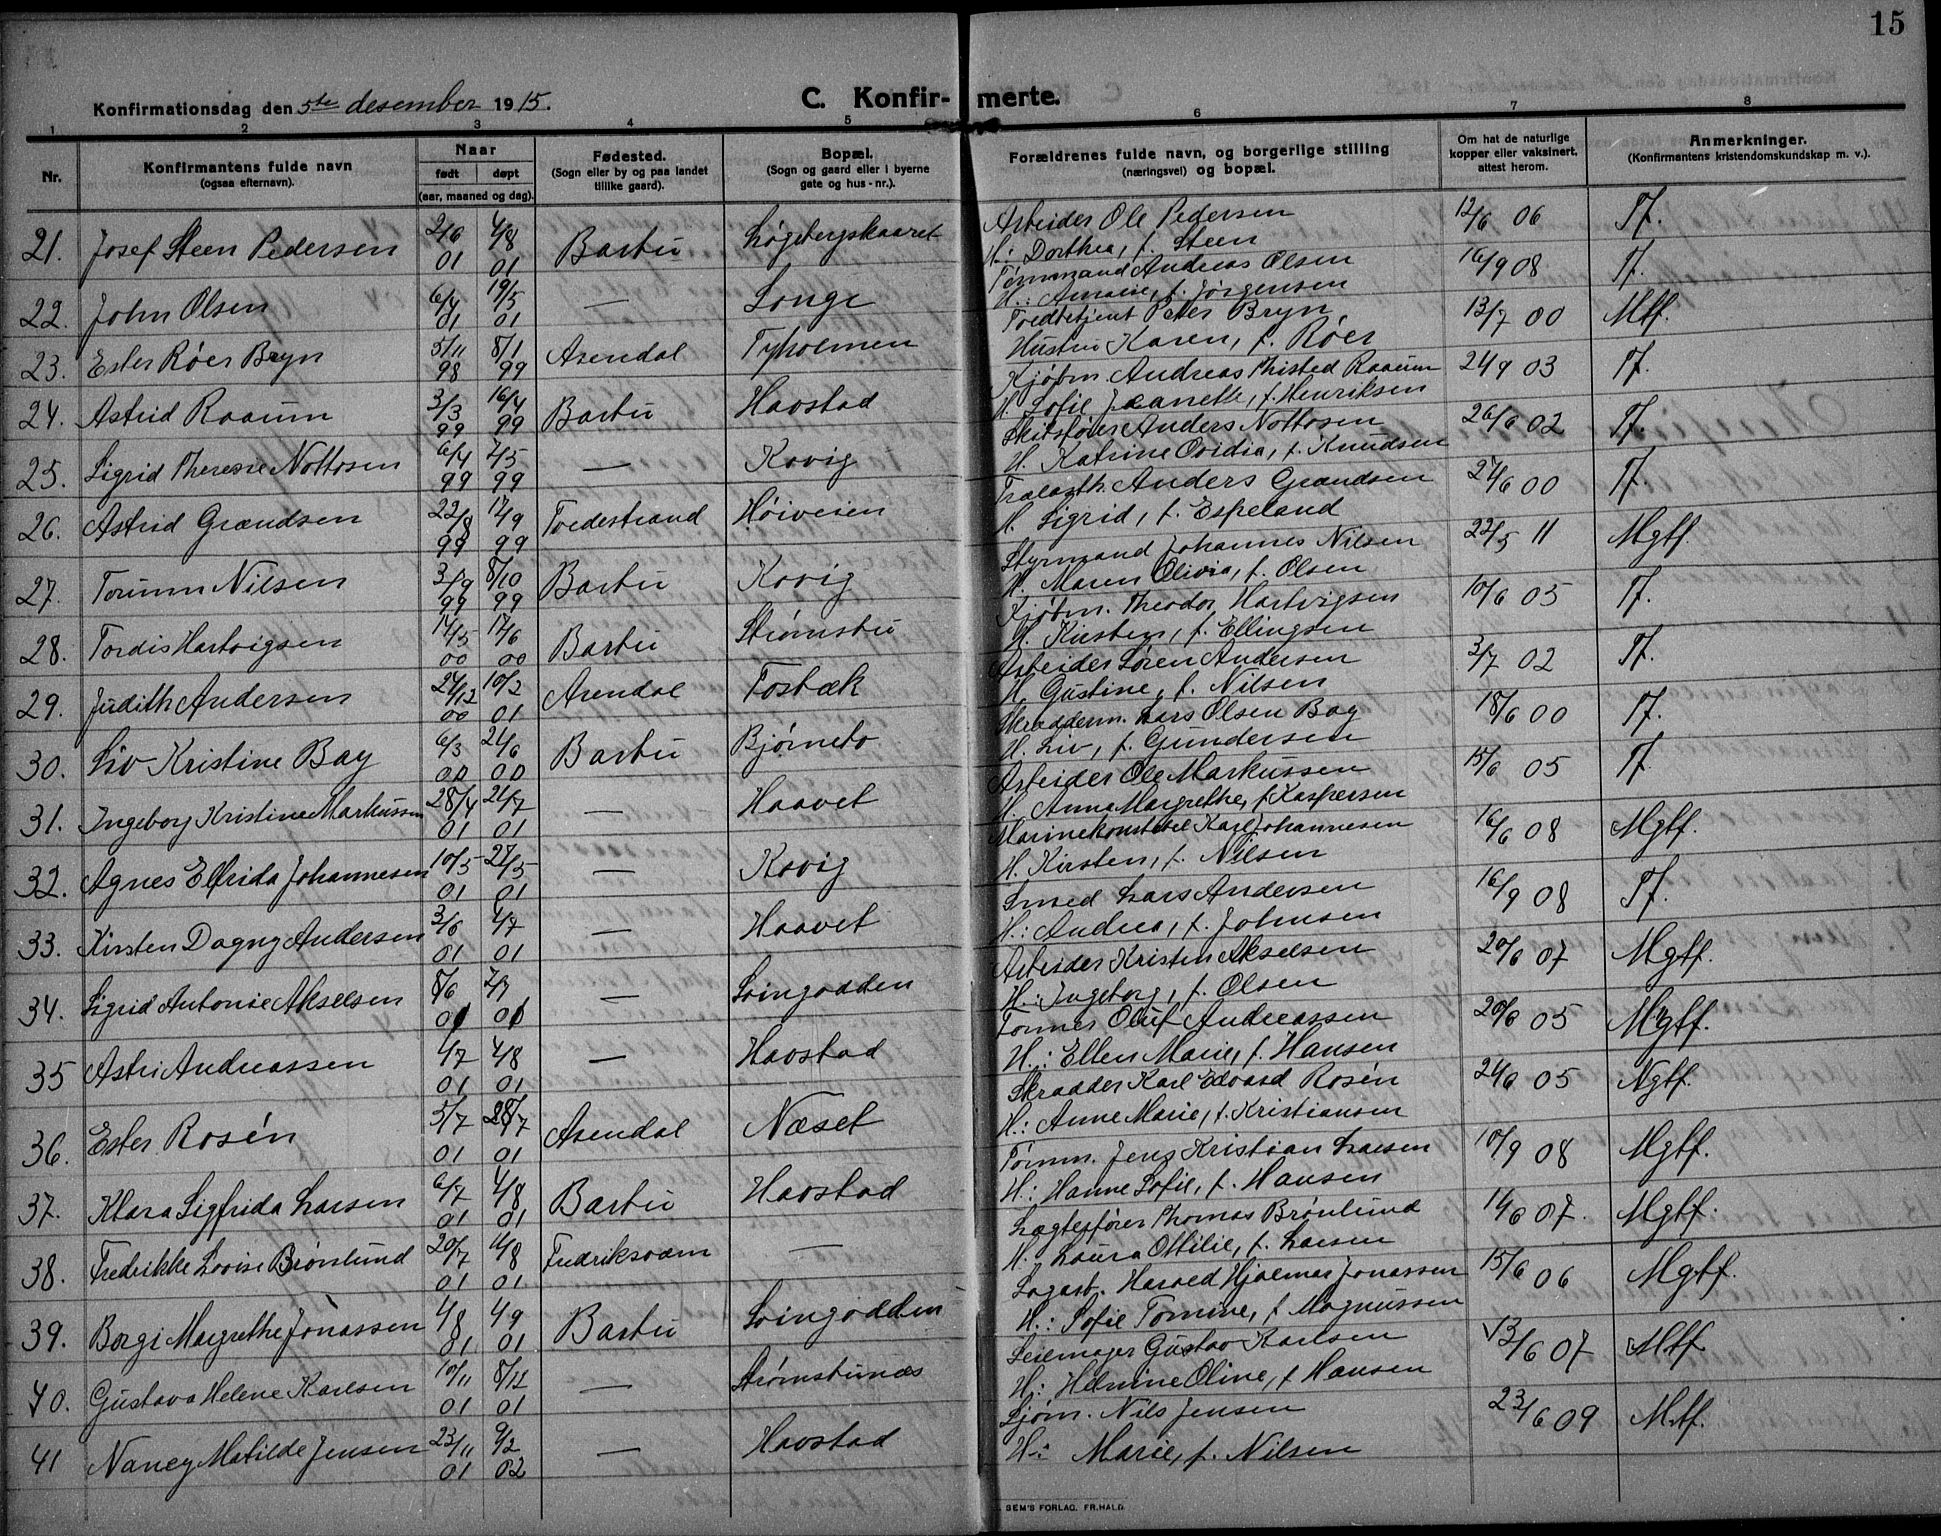 15
Konfirmationsdag den 5te desember 1915.
C. Konfir- merte.
1 2 3 4 5 6 7 8
Nr.
Konfirmantens fulde navn
(ogsaa efternavn).
Naar
født døpt
(aar, maaned og dag).
Fødested.
(Sogn eller by og paa landet
tillike gaard).
Bopæl.
(Sogn og gaard eller i byerne
gate og hus-nr.).
Forældrenes fulde navn, og borgerlige stilling
(næringsvei) og bopæl.
Om hat de naturlige
kopper eller vaksinert,
attest herom.
Anmerkninger.
(Konfirmantens kristendomskundskap m. v.).
21. Josef Steen Pedersen 2/6 01 4/8 01 Barbu Løgebergskaaret Arbeider Ole Pedersen 12/6 06 Tf.
H: Dorthea, f. Steen
22. John Olsen 6/4 01 19/5 01 — Songe Tømmand Andreas Olsen 16/9 08 Tf.
H.: Amalie, f. Jørgensen
23. Ester Røer Bryn 5/11 98 8/1 99 Arendal Tyholmen Toldbetjent Peter Bryn, 13/7 00 Mtf.
Hustru Karen, f. Røer
24. Astrid Raaum 3/3 99 16/4 99 Barbu Havstad Kjøbm. Andreas Thisted Raaum 24/9 03 Tf.
H. Sofie Jeanette, f. Henriksen
25. Sigrid Theresie Nottosen 6/4 99 7/5 99 — Kovig Skibsfører Anders Nottosen 26/6 02 Tf.
H. Katrine Ovidia, f. Knudsen
26. Astrid Grændsen 22/8 99 17/9 99 Tvedestrand Høiveien Anders Grændsen 27/6 00 Tf.
H. Sigrid, f. Espeland
27. Torunn Nilsen 3/9 99 8/10 99 Barbu Kovig Styrmand Johannes Nilsen 22/5 11 Mgtf.
H. Maren Olivia, f. Olsen
28. Tordis Hartvigsen 14/5 00 17/6 00 Barbu Strømsbu Kjøbm. Theodor Hartvigsen 10/6 05 Tf.
H. Kirsten, f. Ellingsen
29. Judith Andersen 27/12 00 10/2 01 Arendal Fosbæk Arbeider Søren Andersen 3/7 02 Tf.
H. Gustine, f. Nilsen
30. Liv Kristine Bag 6/3 00 24/6 00 Barbu Bjørnebo Skradderm. Lars Olsen Bag 18/6 00 Tf.
H. Liv, f. Gundersen
31. Ingeborg Kristine Markussen 28/4 01 21/7 01 — Haavet Arbeider Ole Markussen 15/6 05 Tf.
H. Anna Margrethe, f. Kaspersen
32. Agnes Elfrida Johannesen 10/5 01 27/5 01 — Kovig Marinekonstabel Karl Johannesen 16/6 08 Mgtf.
H. Kirsten, f. Nilsen
33. Kirsten Dagny Andersen 3/6 01 4/7 01 — Haavet Smed Lars Andersen 16/9 08 Tf.
H.: Andrea, f. Johnsen
34. Sigrid Antonie Akselsen 8/6 01 7/7 01 — Svingodden Arbeider Kristen Akselsen 20/6 07 Mgtf.
H.: Ingeborg, f. Olsen
35 Astri Andreassen 4/7 01 4/8 01 — Havstad Tømmer Oluf Andreassen 20/6 05 Mgtf.
H.: Ellen Marie, f. Hansen
36. Ester Rosén 5/7 01 28/7 01 Arendal Næset Skradder Karl Edvard Rosén 24/6 05 Ngtf.
H.: Anne Marie, f. Kristiansen
37. Klara Sigfrida Larsen 6/7 01 4/8 01 Barbu Havstad Tømm. Jens Kristian Larsen 10/9 08 Mgtf.
H.: Hanne Sofie, f. Hansen
38. Fredrikke Lovise Brønlund 20/7 01 11/8 01 Fredriksværn — Lægterfører Thomas Brønlund 14/6 07. Mgtf.
H. Laura Ottilie, f. Larsen
39. Borgi Margrethe Jonassen 4/8 01 4/9 01 Barbu Svingodden Sagarb. Harald Hjalmar Jonassen 15/6 06 Mgtf.
H.: Sofie Tomine, f. Magnussen
40. Gustava Helene Karlsen 10/11 01 8/12 01 — Strømsbunæs Seilmager Gustav Karlsen 13/6 07 Mtf
H: Helmine Oline, f. Hansen
41 Nancy Matilde Jensen 23/11 01 9/2 02 — Havstad Sjøm. Nils Jensen 23/6 09 Mtf.
H: Marie, f. Nilsen
SEM'S FORLAG. FR.HALD.